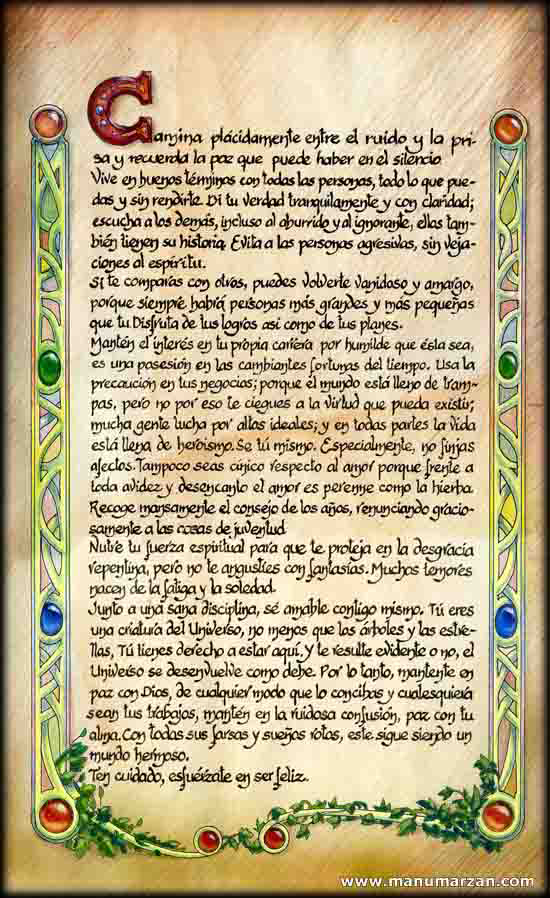 Camina plácidamente entre el ruido y la pri-
sa y recuerda la paz que puede haber en el silencio
Vive en buenos términos con todas las personas, todo lo que pue-
das y sin rendirte. Di tu verdad tranquilamente y con claridad;
escucha a los demás, incluso al aburrido y al ignorante, ellas tam-
bién tienen su historia. Evita a las personas agresivas, sin veja-
ciones al espíritu.
Si te comparas con otros, puedes volverte vanidoso y amargo,
porque siempre habrá personas más grandes y más pequeñas
que tu. Disfruta de tus logros asi como de tus planes.
Mantén el interés en tu propia carrera por humilde que ésta sea,
es una posesión en las cambiantes fortunas del tiempo. Usa la
precaución en tus negocios; porque el mundo está lleno de tram-
pas, pero no por eso te ciegues a la virtud que pueda existir;
mucha gente lucha por altos ideales; y en todas partes la vida
está llena de heroismo. Se tú mismo. Especialmente, no finjas
afectos. Tampoco seas cínico respecto al amor porque frente a
toda avidez y desencanto el amor es perenne como la hierba.
Recoge mansamente el consejo de los años, renunciando gracio-
samente a las cosas de juventud.
Nutre tu fuerza espiritual para que te proteja en la desgracia
repentina, pero no te angusties con fantasías. Muchos temores
nacen de la fatiga y la soledad.
Junto a una sana disciplina, sé amable contigo mismo. Tú eres
una criatura del Universo, no menos que los árboles y las estre-
llas, Tú tienes derecho a estar aquí. Y te resulte evidente o no, el
Universo se desenvuelve como debe. Por lo tanto, mantente en
paz con Dios, de cualquier modo que lo concibas y cualesquiera
sean tus trabajos, mantén en la ruidosa confusión, paz con tu
alma. Con todas sus farsas y sueños rotos, este sigue siendo un
mundo hermoso.
Ten cuidado, esfuérzate en ser feliz.
www.manumarzan.com